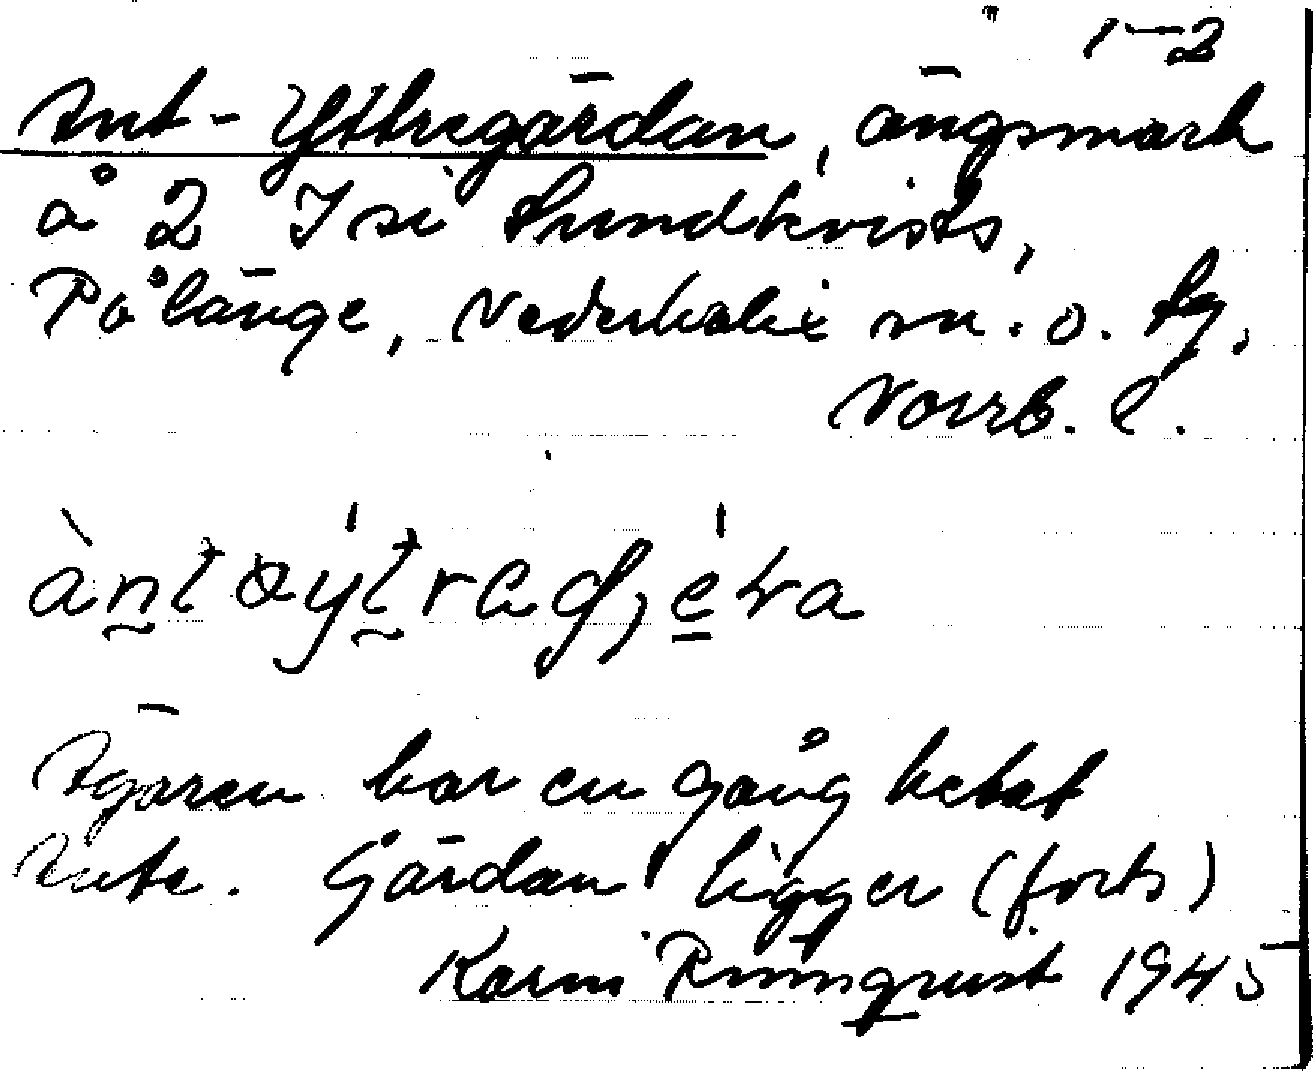 1–2
Ant-Yttregärdan, ängsmark
å 2 Isi Sundkvists,
Pålänge, Nederkalix sn. o. tg,
Norrb. l.
Ägaren har en gång hetat
Ante. Gärdan ligger (forts)
Karin Rönnqvist 1945